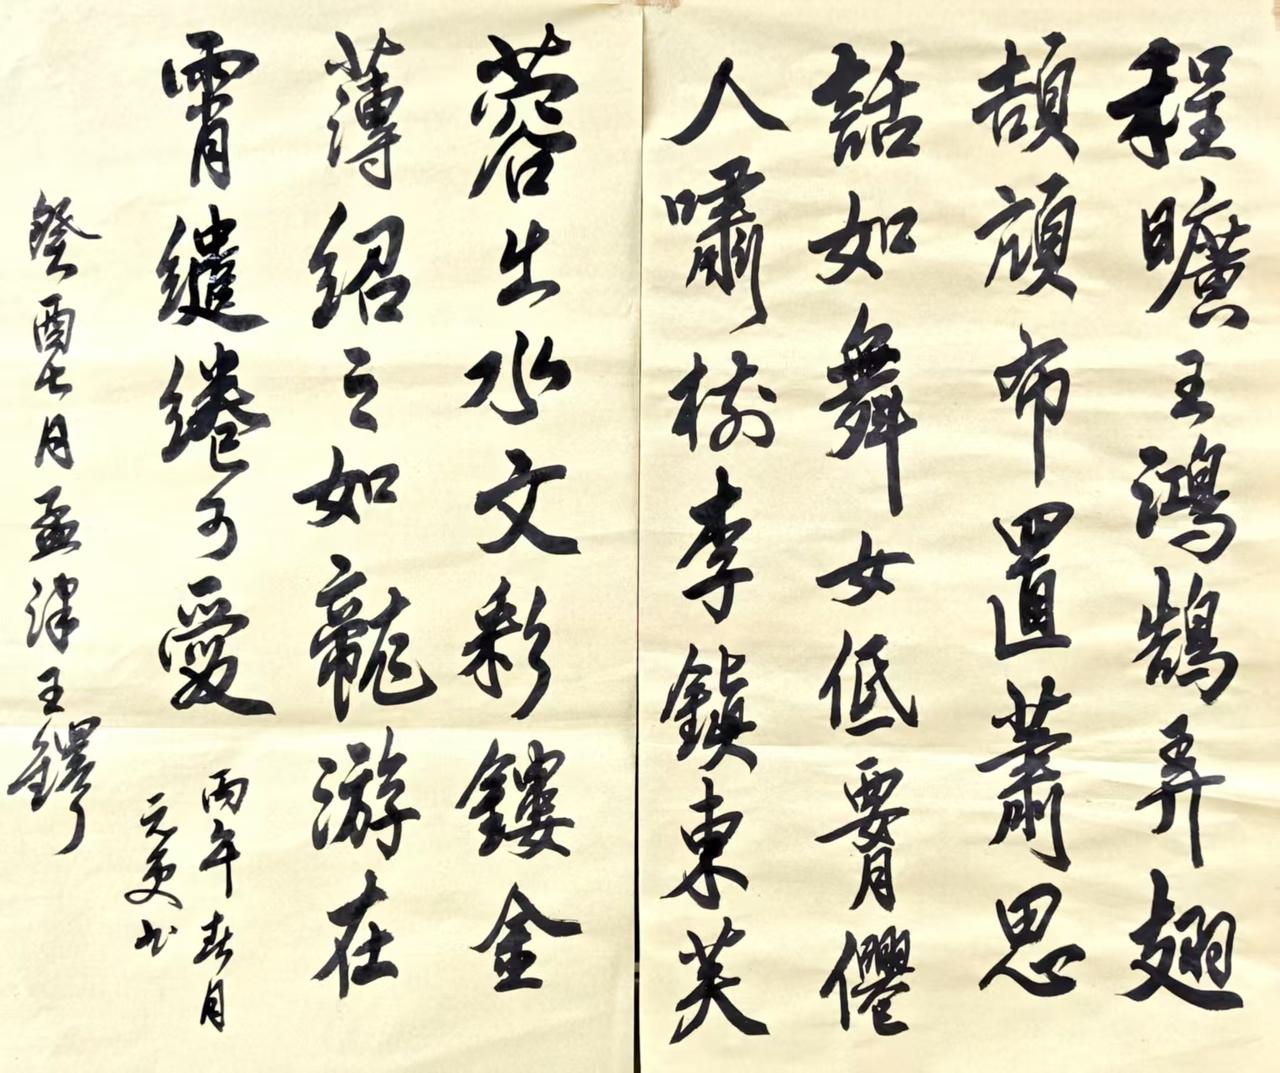 程曠王鴻鵠弄翅
頡頏布置蕭思
話如舞女低腰僊
人嘯樹李鎮東芙
蓉出水文彩鏤金
薄紹之如龍游在
霄繾綣可愛
丙午春月
元更书
癸酉七月孟津王鐸